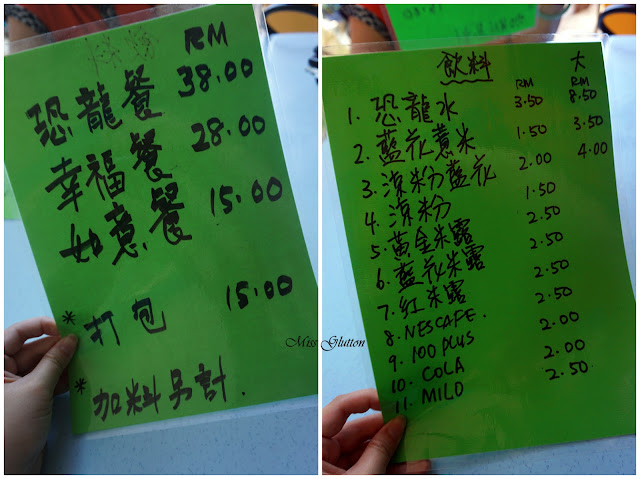 RM
恐龍餐 38.00
幸福餐 28.00
如意餐 15.00
* 打包 15.00
* 加料另計.
飲料 大
RM RM
1. 恐龍水 3.50 8.50
2. 藍花薏米 1.50 3.50
3. 涼粉藍花 2.00 4.00
4. 涼粉 1.50
5. 黃金米露 2.50
6. 藍花米露 2.50
7. 紅米露 2.50
8. NESCAFE. 2.50
9. 100 PLUS 2.00
10. COLA 2.00
11. MILD 2.50
Miss Glutton